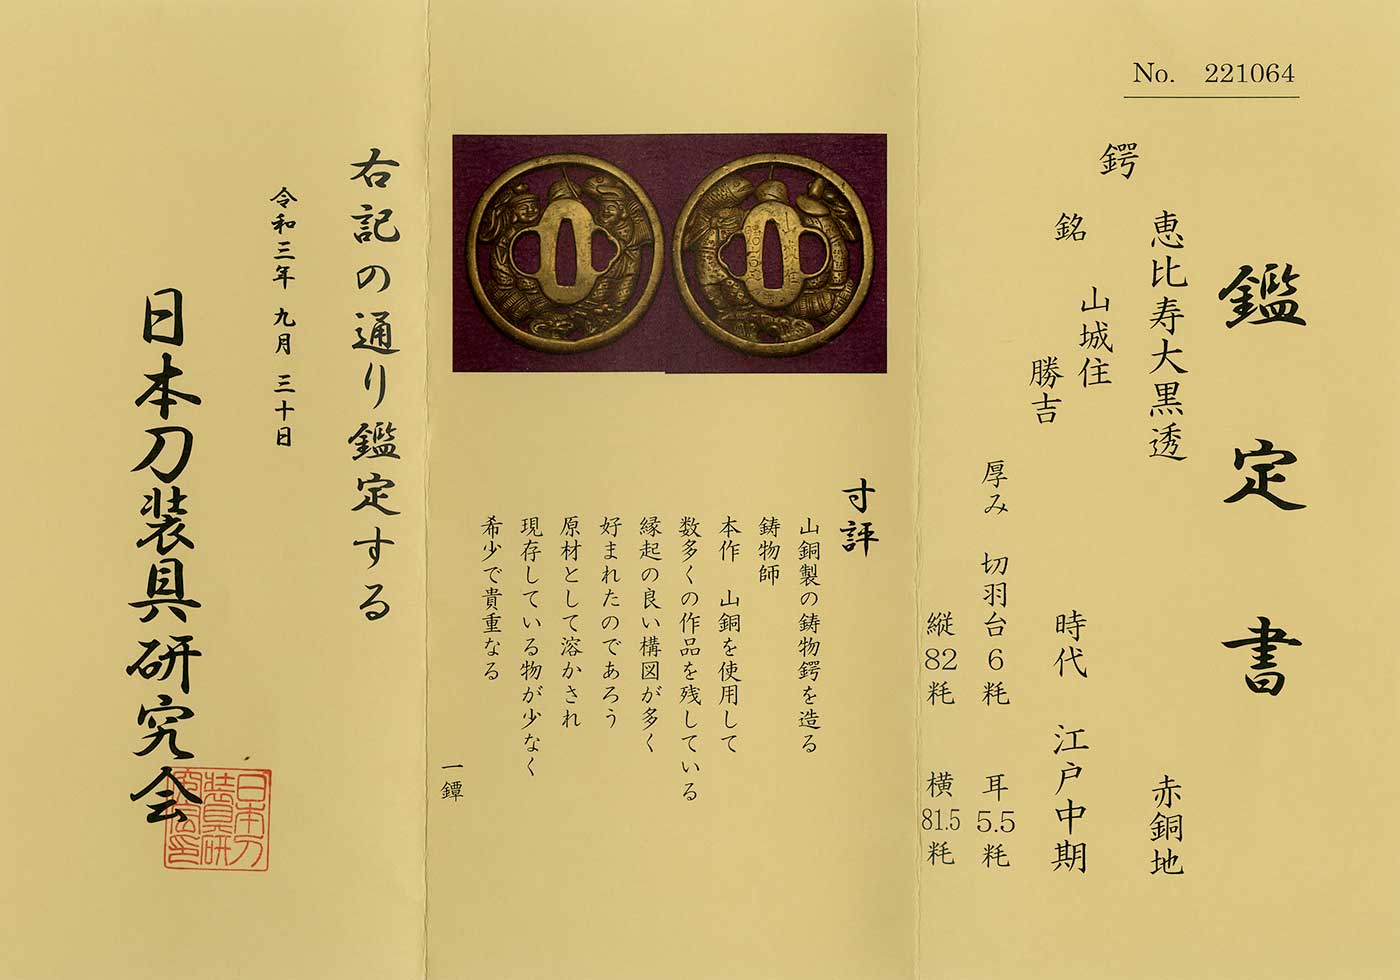 No. 221064
鑑定書
鍔
恵比寿大黒透
赤銅地
銘 山城住
勝吉
時代 江戸中期
厚み 切羽台6粍 耳5.5粍
縦82粍 横81.5粍
寸評
山銅製の鋳物鍔を造る
鋳物師
本作 山銅を使用して
数多くの作品を残している
縁起の良い構図が多く
好まれたのであろう
原材として溶かされ
現存している物が少なく
希少で貴重なる
一鐔
右記の通り鑑定する
令和三年 九月 三十日
日本刀装具研究会
日本刀
装具研
究会印